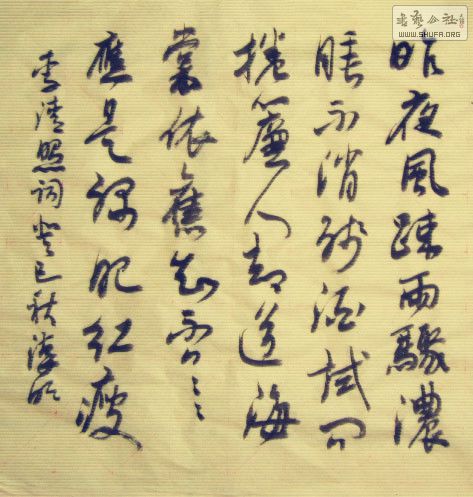 書藝公社
WWW.SHUFA.ORG
昨夜風踈雨驟濃
睡不消殘酒試問
捲簾人却道海
棠依舊知否〻〻
應是綠肥紅瘦
李清照詞癸巳秋